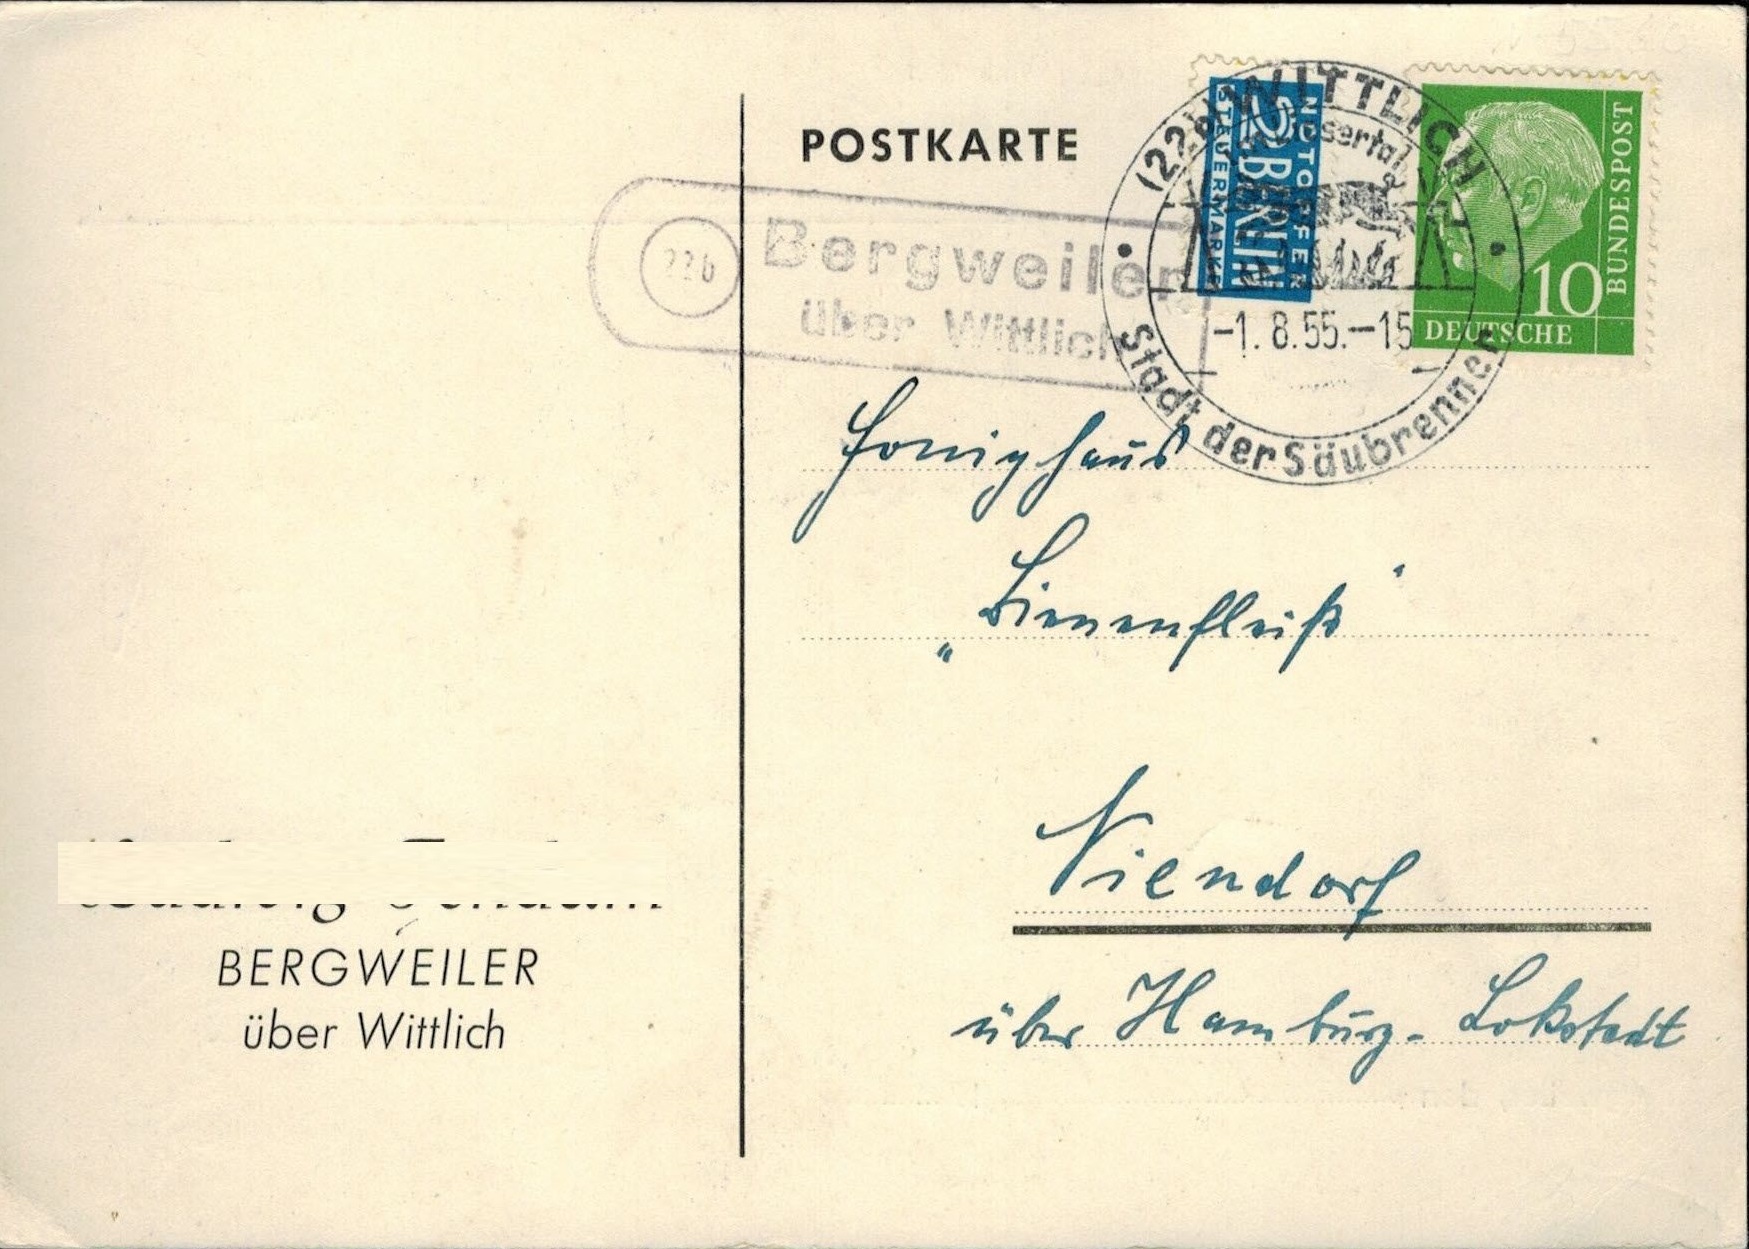 POSTKARTE
22b
Bergweiler
über Wittlich
(22b) WITTLICH
Mosertal
-1.8.55.-15
Stadt der Säubrenner
NOTOPFER
2 BERLIN
STEUERMARKE
10
DEUTSCHE
BUNDESPOST
Honighaus
„Bienenfleiß“
Niendorf
über Hamburg-Lokstedt
BERGWEILER
über Wittlich